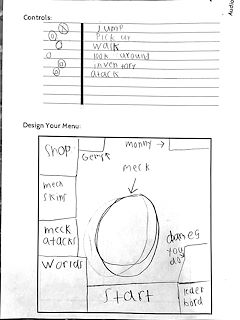 Controls:
Jump
Pick up
walk
look around
inventory
atack
Audio
Design Your Menu:
Shop
Gems
monny →
meck
mech
skins
meck
atacks
Worlds
chames
you
do
Start
leder
bord